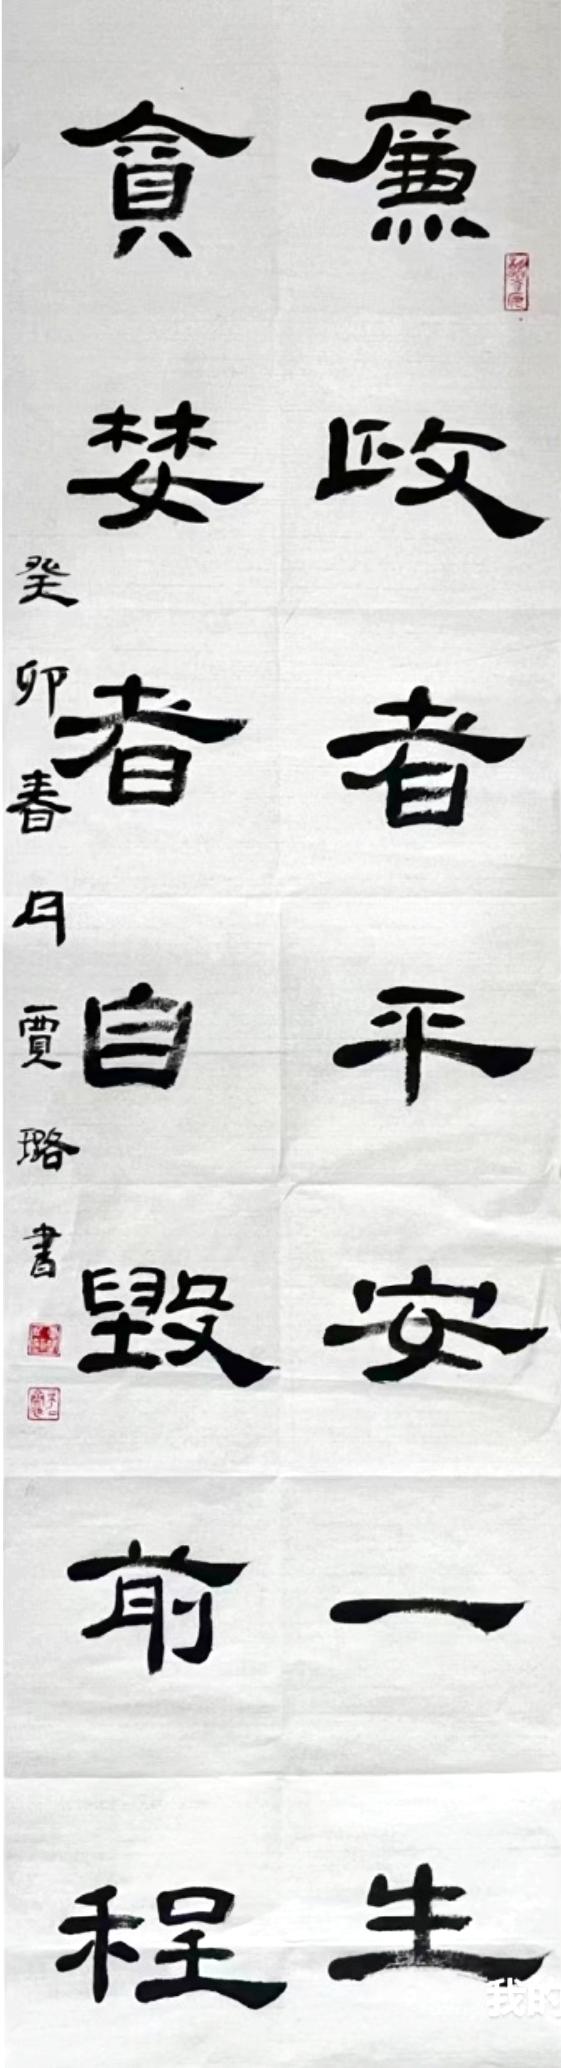 廉政者平安一生
貪婪者自毀前程
癸卯春月賈璐書
我的